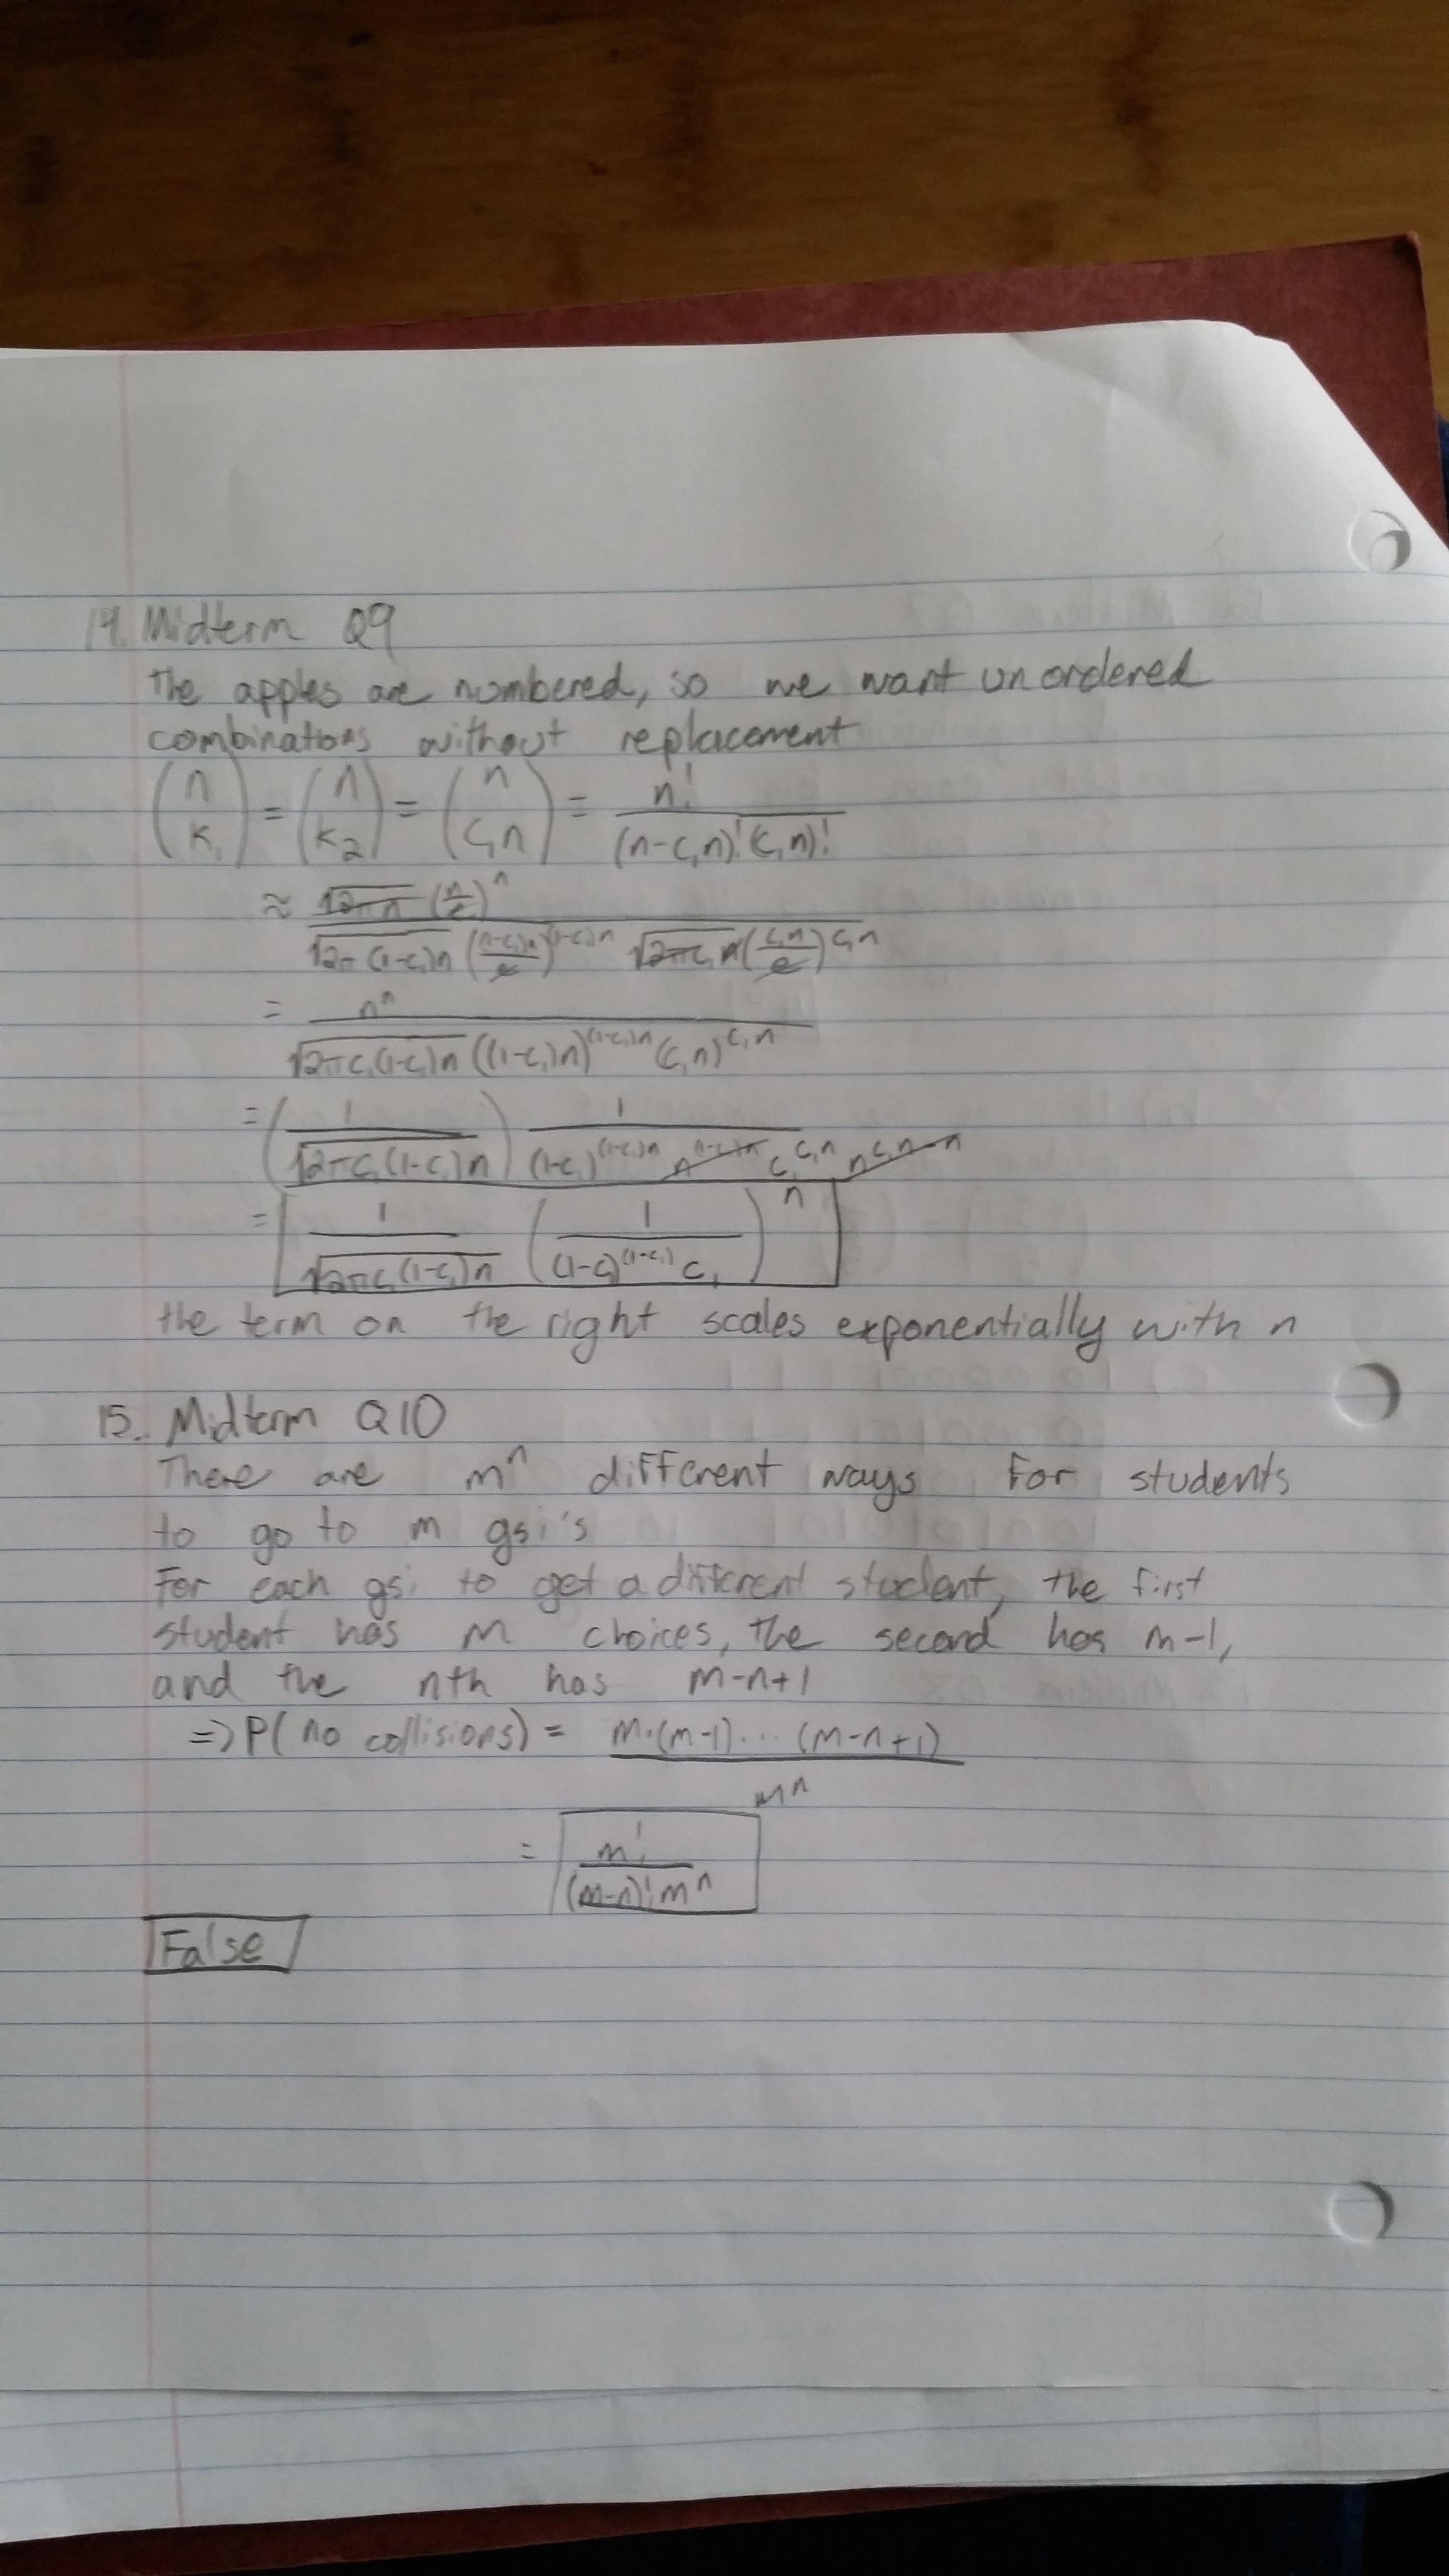 14. Midterm Q9
The apples are numbered, so we want unordered
combinations without replacement
(n k₁) = (n k₂) = (n c₁n) = n! / (n-c₁n)!(c₁n)!
≈ √2πn (n/e)ⁿ / √2π(1-c₁)n ((1-c₁)n/e)^(1-c₁)n √2πc₁n (c₁n/e)^c₁n
= nⁿ / √2πc₁(1-c₁)n ((1-c₁)n)^(1-c₁)n (c₁n)^c₁n
= (1 / √2πc₁(1-c₁)n) 1 / (1-c₁)^(1-c₁)n n^(1-c₁)n c₁^c₁n n^c₁n-n
= 1 / √2πc₁(1-c₁)n (1 / (1-c₁)^(1-c₁) c₁)ⁿ
the term on the right scales exponentially with n
15. Midterm Q10
There are mⁿ different ways for students
to go to m gsi's
For each gsi to get a different student, the first
student has m choices, the second has m-1,
and the nth has m-n+1
=> P(no collisions) = m·(m-1)...(m-n+1) / mⁿ
= m! / (m-n)! mⁿ
False